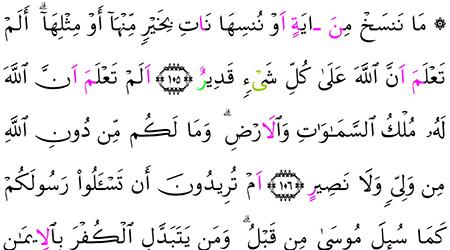 ۞ مَا نَنسَخْ مِنَ ـايَةٍ اَوْ نُنسِهَا نَاتِ بِخَيْرٍ مِّنْهَآ أَوْ مِثْلِهَآۖ أَلَمْ
تَعْلَمَ اَنَّ اَللَّهَ عَلَىٰ كُلِّ شَےْءٍ قَدِيرٌ ﴿١٠٥﴾ اَلَمْ تَعْلَمَ اَنَّ اَللَّهَ
لَهُۥ مُلْكُ السَّمَٰوَٰتِ وَالَارْضِۖ وَمَا لَكُم مِّن دُونِ اِللَّهِ
مِن وَلِيٍّ وَلَا نَصِيرٍ ﴿١٠٦﴾ اَمْ تُرِيدُونَ أَن تَسْـَٔلُواْ رَسُولَكُمْ
كَمَا سُئِلَ مُوسَىٰ مِن قَبْلُۖ وَمَن يَتَبَدَّلِ اِلْكُفْرَ بِالِايمَٰنِ